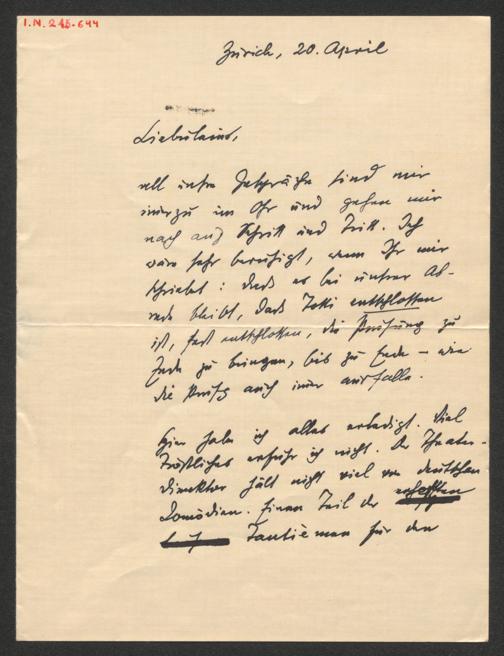 I.N. 245.644
Zürich, 20. April
Liebelein,
all unsre Gespräche sind mir
im Ohr und gehen mir
nach auf Schritt und Tritt. Ich
wäre sehr beruhigt, wenn Ihr mir
schriebet: dass es bei unsrer Ab-
rede bleibt, dass Tetti entschlossen
ist, fest entschlossen, die Prüfung zu
Ende zu bringen, bis zu Ende – wie
die Prüfg auch immer ausfalle.
Hier habe ich alles erledigt. Viel
Tröstliches erfuhr ich nicht. Der Theater-
direktor hält nicht viel von deutschen
Komödien. Einen Teil der
Tantièmen für den